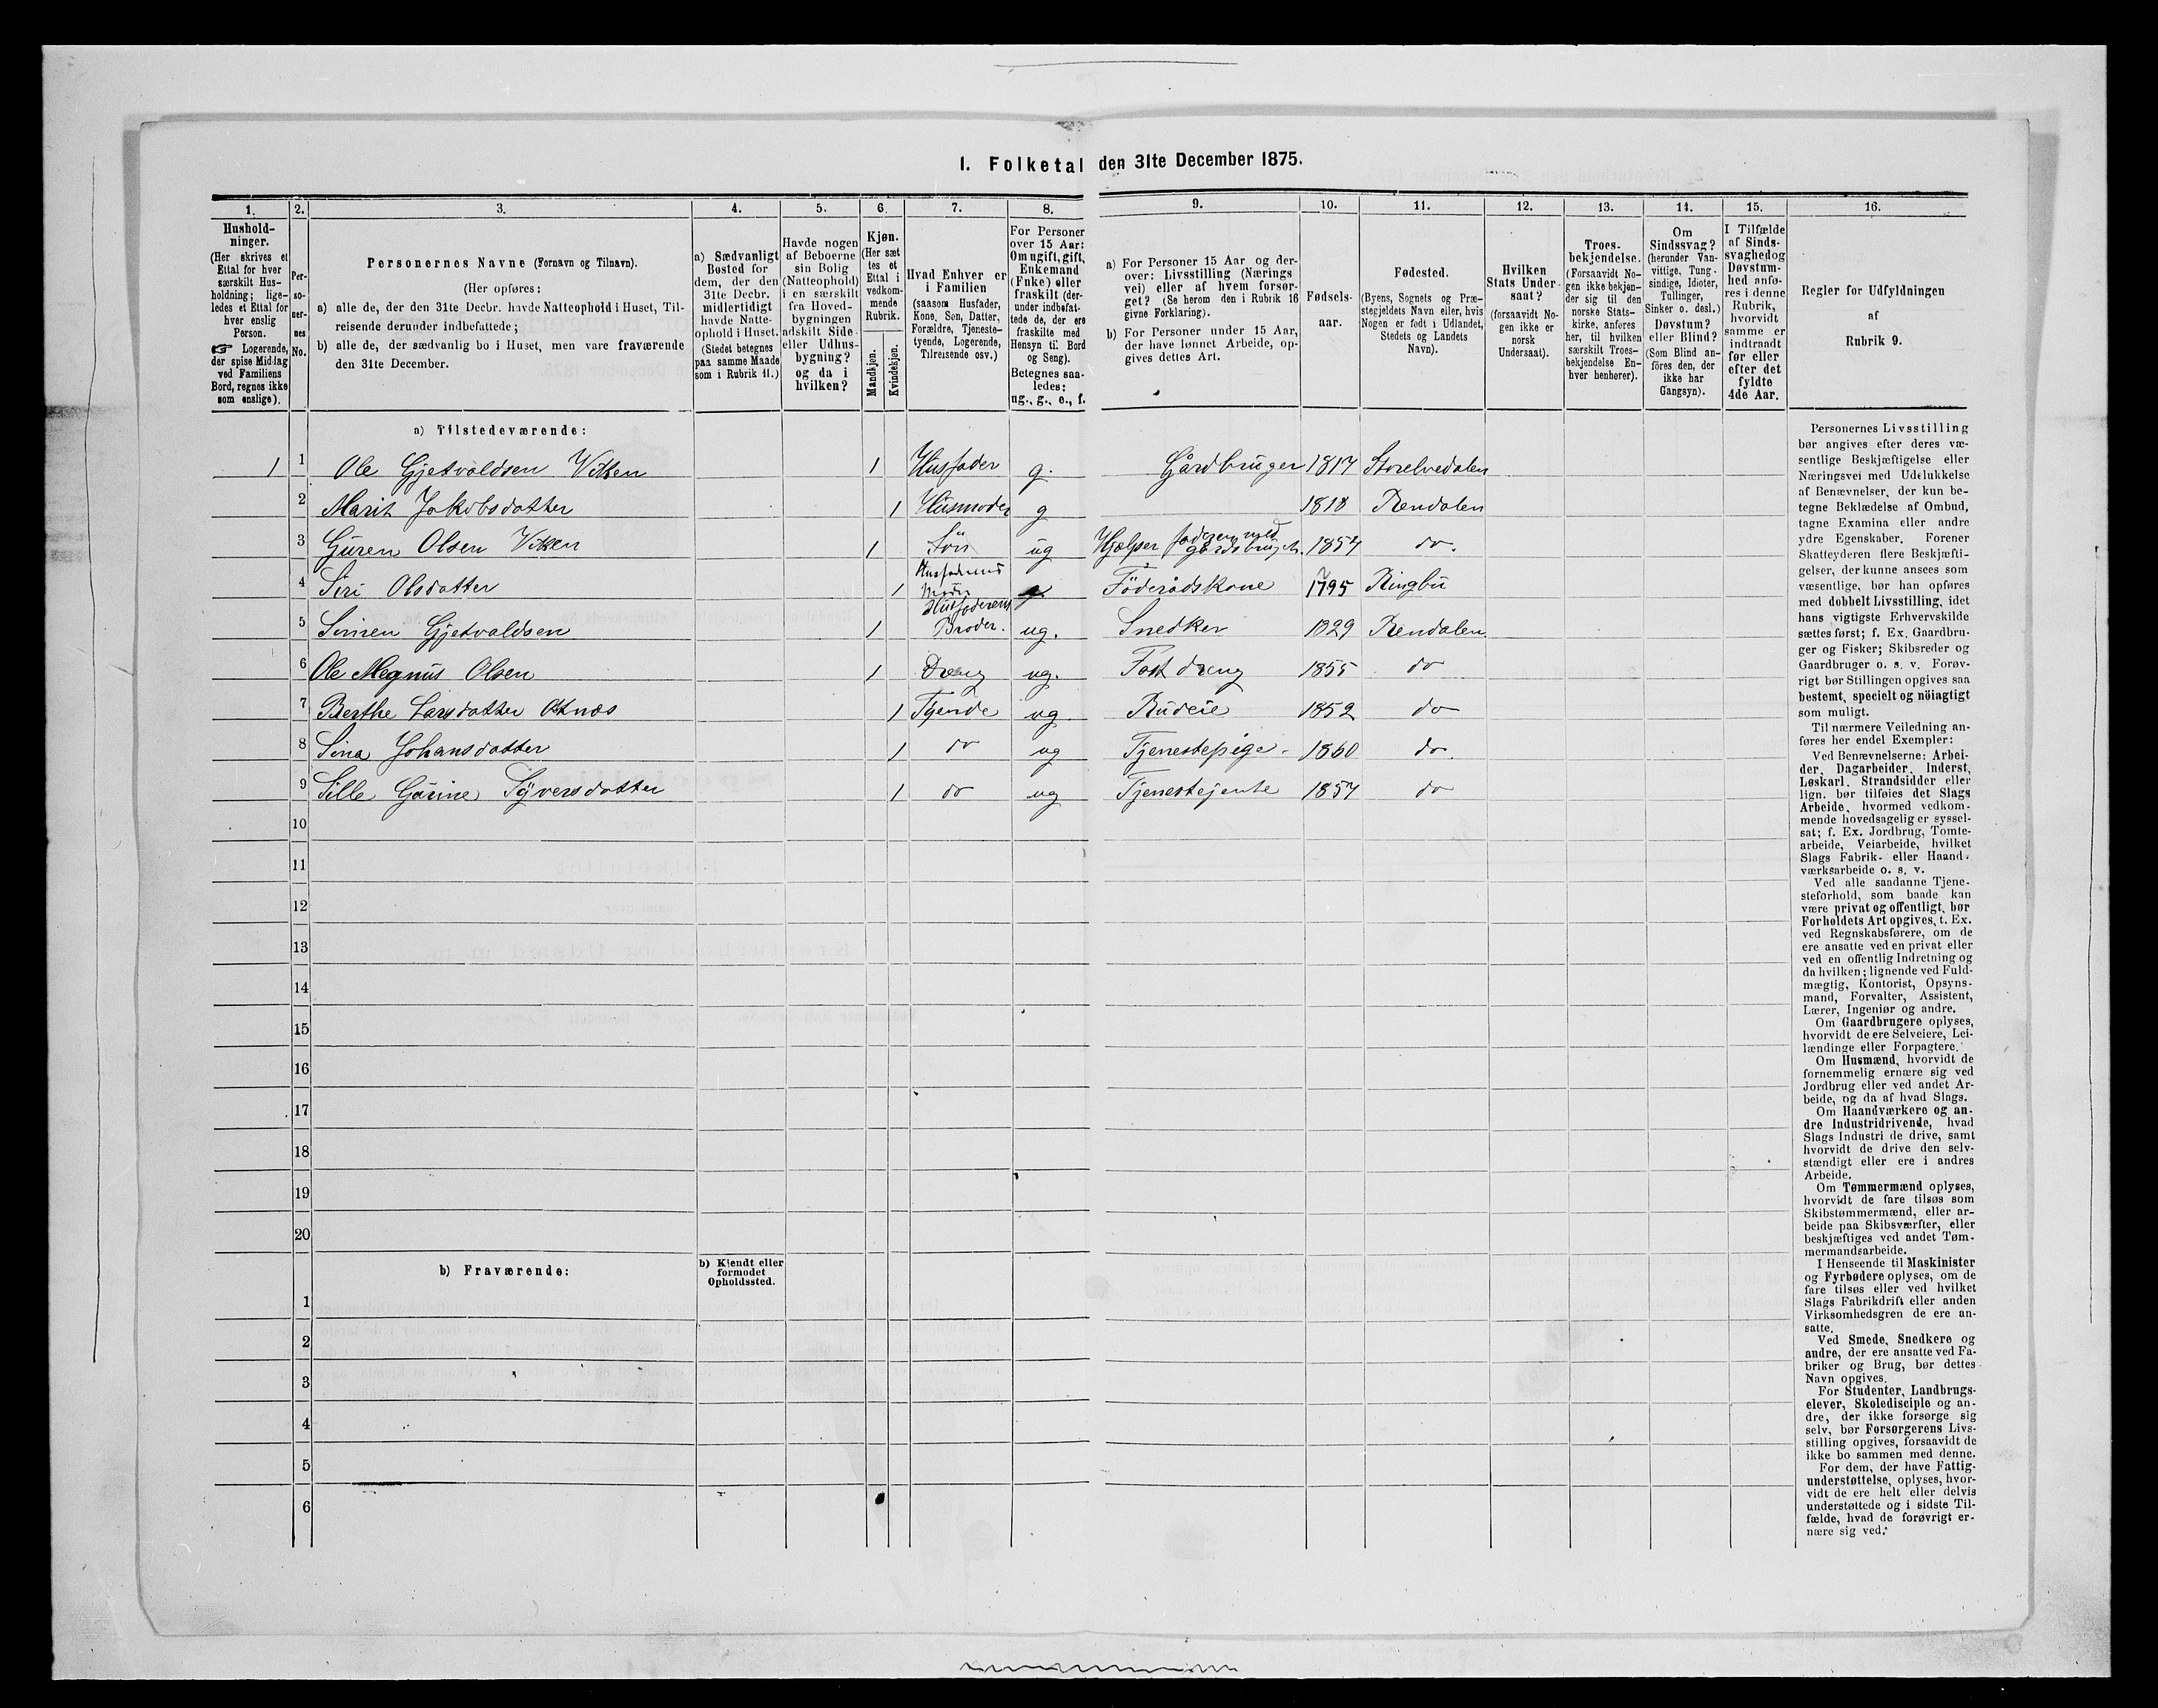 I. Folketal den 31te December 1875.
1. 2. 3. 4. 5. 6. 7. 8. 9. 10. 11. 12. 13. 14. 15. 16.
Hushold-
ninger.
(Her skrives et
Ettal for hver
særskilt Hus-
holdning; lige-
ledes et Ettal for
hver enslig
Person.
☞ Logerende,
der spise Middag
ved Familiens
Bord, regnes ikke
som enslige).
Per-
so-
ner-
nes
No.
Personernes Navne (Fornavn og Tilnavn).
(Her opføres:
a) alle de, der den 31te Decbr. havde Natteophold i Huset, Til-
reisende derunder indbefattede;
b) alle de, der sædvanlig bo i Huset, men vare fraværende
den 31te December.
a) Sædvanligt
Bosted for
dem, der den
31te Decbr.
midlertidigt
havde Natte-
ophold i Huset.
(Stedet betegnes
paa samme Maade
som i Rubrik 11.)
Havde nogen
af Beboerne
sin Bolig
(Natteophold)
i en særskilt
fra Hoved-
bygningen
adskilt Side
eller Udhus-
bygning?
og da i
hvilken?
Kjøn.
(Her sæt
tes et
Ettal i
vedkom-
mende
Rubrik.
Mandkjøn.
Kvindekjøn.
Hvad Enhver er
i Familien
(saasom Husfader,
Kone, Søn, Datter,
Forældre, Tjeneste-
tyende, Logerende,
Tilreisende osv.)
For Personer
over 15 Aar:
Om ugift, gift,
Enkemand
(Enke) eller
fraskilt (der-
under indbefat-
tede de, der ere
fraskilte med
Hensyn til Bord
og Seng).
Betegnes saa-
ledes:
ug., g., e., f.
a) For Personer 15 Aar og der-
over: Livsstilling (Nærings
vei) eller af hvem forsør-
get? (Se herom den i Rubrik 16
givne Forklaring).
b) For Personer under 15 Aar,
der have lønnet Arbeide, op-
gives dettes Art.
Fødsels-
aar.
Fødested.
(Byens, Sognets og Præ-
stegjeldets Navn eller, hvis
Nogen er født i Udlandet,
Stedets og Landets
Navn).
Hvilken
Stats Under-
saat?
(forsaavidt No-
gen ikke er
norsk
Undersaat).
Troes-
bekjendelse.
(Forsaavidt No-
gen ikke bekjen-
der sig til den
norske Stats-
kirke, anføres
her, til hvilken
særskilt Troes-
bekjendelse En-
hver henhører).
Om
Sindssvag?
(herunder Van-
vittige, Tung-
sindige, Idioter,
Tullinger,
Sinker o. desl.)
Døvstum?
eller Blind?
(Som Blind an-
føres den, der
ikke har
Gangsyn).
I Tilfælde
af Sinds-
svaghed og
Døvstum-
hed anfø-
res i denne
Rubrik,
hvorvidt
samme er
indtraadt
før eller
efter det
fyldte
4de Aar.
Regler for Udfyldningen
af
Rubrik 9.
a) Tilstedeværende:
1 1 Ole Gjetvaldsen Vikken 1 Husfader g. Gårdbruger 1817 Storelvedalen
2 Marit Jakobsdatter 1 Husmoder g 1818 Rendalen
3 Guren Olsen Vikken 1 Sön ug Hjælper faderen med gårdsbruget. 1854 do.
4 Siri Olsdatter 1 Husfaderens Moder Föderådskone 1795 Ringbu
5 Simen Gjetvaldsen 1 Husfaderens Broder. ug. Snedker 1829 Rendalen
6 Ole Magnus Olsen 1 Dreng ug. Fast dreng 1855 do
7 Berthe Larsdatter Åknæs 1 Tyende ug Budeie 1852 do
8 Sina Johansdatter 1 do ug Tjenestepige 1860 do.
9 Sille Garine Syversdatter 1 do ug Tjenestejente 1857 do
10
11
12
13
14
15
16
17
18
19
20
b) Fraværende:
b) Kjendt eller
formodet
Opholdssted.
1
2
3
4
5
6
Personernes Livsstilling
bør angives efter deres væ-
sentlige Beskjæftigelse eller
Næringsvei med Udelukkelse
af Benævnelser, der kun be-
tegne Beklædelse af Ombud,
tagne Examina eller andre
ydre Egenskaber. Forener
Skatteyderen flere Beskjæfti-
gelser, der kunne ansees som
væsentlige, bør han opføres
med dobbelt Livsstilling, idet
hans vigtigste Erhvervskilde
sættes først; f. Ex. Gaardbru-
ger og Fisker; Skibsreder og
Gaardbruger o. s. v. Forøv-
rigt bør Stillingen opgives saa
bestemt, specielt og nöiagtigt
som muligt.
Til nærmere Veiledning an-
føres her endel Exempler:
Ved Benævnelserne: Arbei-
der, Dagarbeider, Inderst,
Løskarl, Strandsidder eller
lign. bør tilføies det Slags
Arbeide, hvormed vedkom-
mende hovedsagelig er syssel-
sat; f. Ex. Jordbrug, Tomte-
arbeide, Veiarbeide, hvilket
Slags Fabrik- eller Haand-
værksarbeide o. s. v.
Ved alle saadanne Tjene-
steforhold, som baade kan
være privat og offentligt, bør
Forholdets Art opgives, t. Ex.
ved Regnskabsførere, om de
ere ansatte ved en privat eller
ved en offentlig Indretning og
da hvilken; lignende ved Fuld-
mægtig, Kontorist, Opsyns-
mand, Forvalter, Assistent,
Lærer, Ingeniør og andre.
Om Gaardbrugere oplyses,
hvorvidt de ere Selveiere, Lei-
lændinge eller Forpagtere.
Om Husmænd, hvorvidt de
fornemmelig ernære sig ved
Jordbrug eller ved andet Ar-
beide, og da af hvad Slags.
Om Haandværkere og an-
dre Industridrivende, hvad
Slags Industri de drive, samt
hvorvidt de drive den selv-
stændigt eller ere i andres
Arbeide.
Om Tømmermænd oplyses,
hvorvidt de fare tilsøs som
Skibstømmermænd, eller ar-
beide paa Skibsværfter, eller
beskjæftiges ved andet Tøm-
mermandsarbeide.
I Henseende til Maskinister
og Fyrbødere oplyses, om de
fare tilsøs eller ved hvilket
Slags Fabrikdrift eller anden
Virksomhedsgren de ere an-
satte.
Ved Smede, Snedkere og
andre, der ere ansatte ved Fa-
briker og Brug, bør dettes
Navn opgives.
For Studenter, Landbrugs-
elever, Skoledisciple og an-
dre, der ikke forsørge sig
selv, bør Forsørgerens Livs-
stilling opgives, forsaavidt de
ikke bo sammen med denne.
For dem, der have Fattig-
understøttelse, oplyses, hvor-
vidt de ere helt eller delvis
understøttede og i sidste Til-
fælde, hvad de forøvrigt er-
nære sig ved.